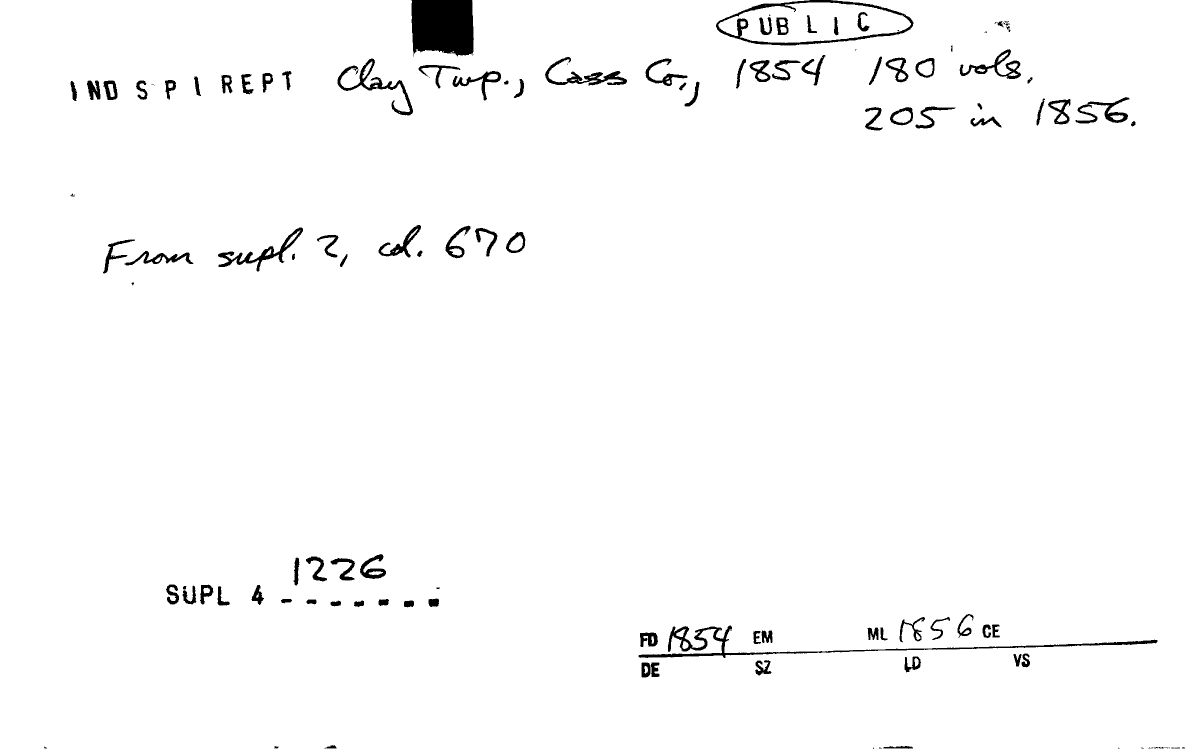 PUBLIC
INDSPIREPT Clay Twp., Cass Co., 1854 180 vols.
205 in 1856.
From supl. 2, col. 670
1226
SUPL 4 -------
FD 1854 EM ML 1856 CE
DE SZ LD VS